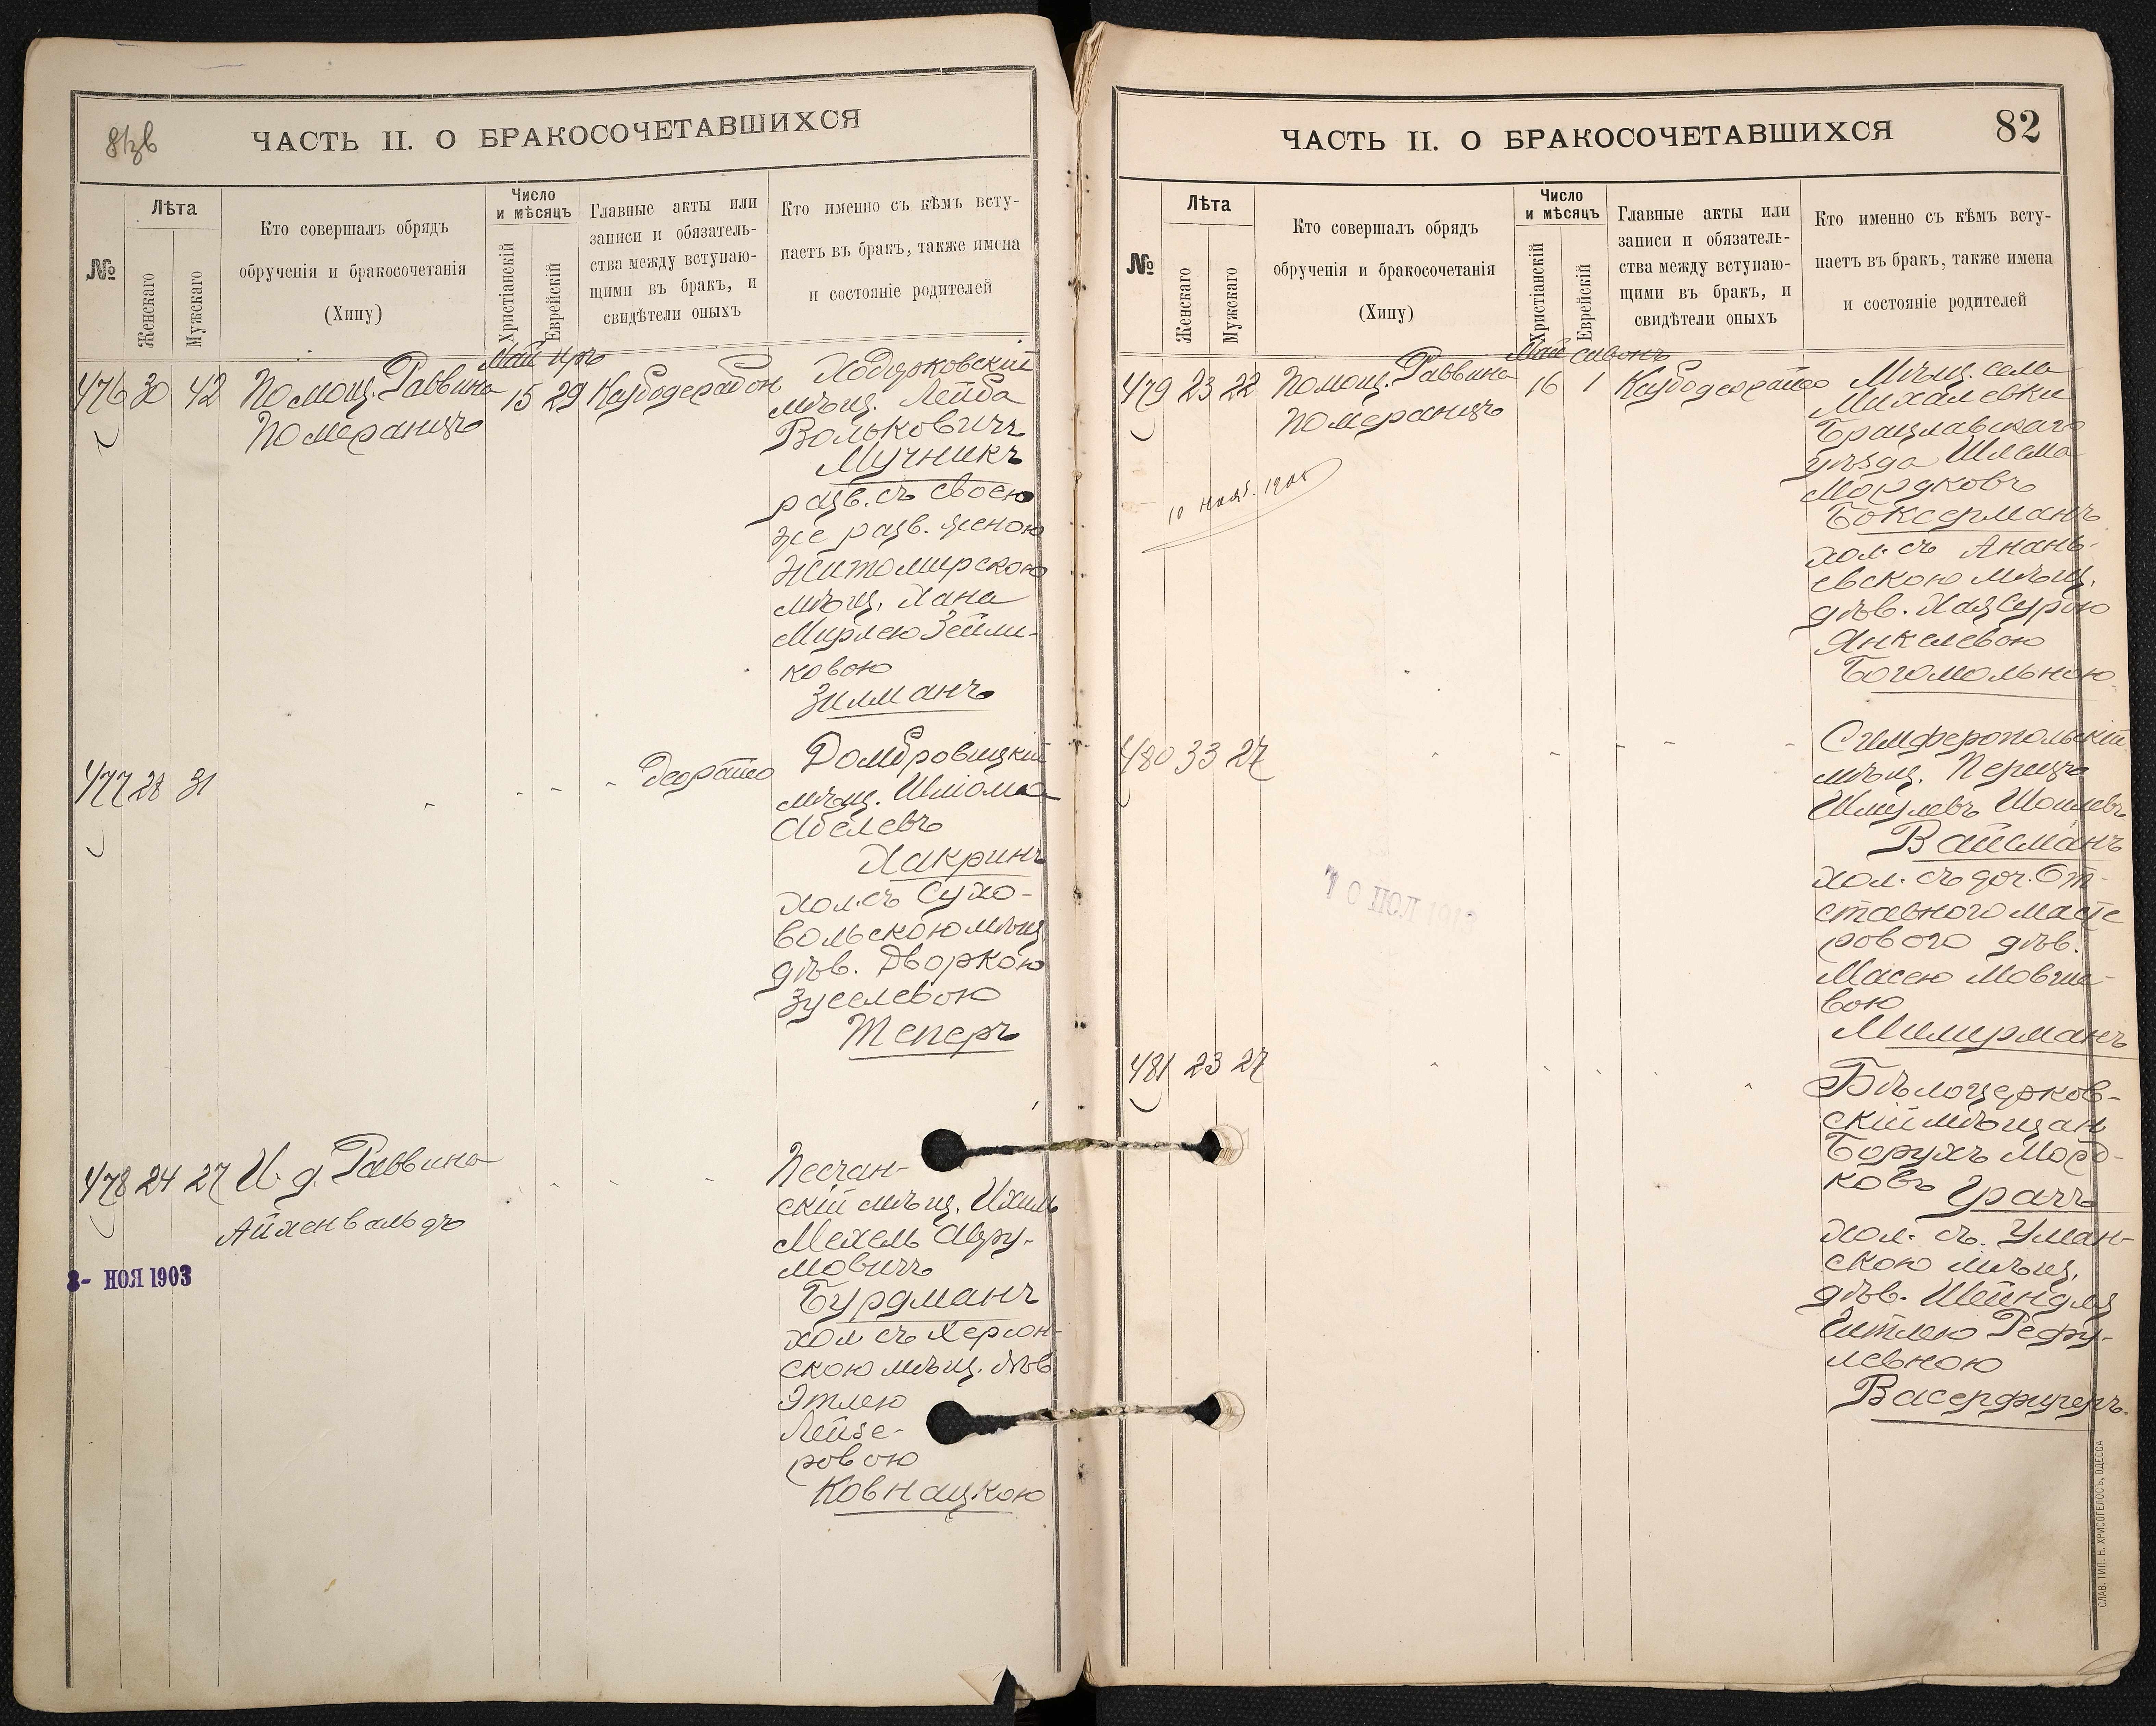 81зв
ЧАСТЬ II. О БРАКОСОЧЕТАВШИХСЯ
№
Лѣта
Женскаго
Мужскаго
Кто совершалъ обрядъ
обрученія и бракосочетанія
(Хипу)
Число
и мѣсяцъ
Христіанскій
Еврейскій
Главные акты или
записи и обязатель-
ства между вступаю-
щими въ бракъ, и
свидѣтели оныхъ
Кто именно съ кѣмъ всту-
паетъ въ бракъ, также имена
и состояніе родителей
Май Иръ
476 30 42 Помощ. Раввина 15 29
Померанцъ
Ходорковскій
мѣщ. Лейба
Вольковичъ
Мучникъ
разв. съ своею
же разв. женою
Житомирскою
мѣщ. Хана
Мирлею Зейли-
ковою
Зилманъ
477 28 31
Деорайсо
Домбровицкій
мѣщ. Шліома
Абелевъ
Хакринъ
хол. съ Сухо-
вольскою мѣщ.
дѣв. Дворкою
Зуселевою
Теперъ
478 24 27 И. д. Раввина
Айхенвальдъ
8- НОЯ 1903
Песчан-
скій мѣщ. Ихиль
Мехель Авру-
мовичъ
Бурдманъ
хол съ Херсон-
скою мѣщ. дѣв
Этлею
Лейзе-
ровою
Ковнацкою
82
ЧАСТЬ II. О БРАКОСОЧЕТАВШИХСЯ
№
Лѣта
Женскаго
Мужскаго
Кто совершалъ обрядъ
обрученія и бракосочетанія
(Хипу)
Число
и мѣсяцъ
Христіанскій
Еврейскій
Главные акты или
записи и обязатель-
ства между вступаю-
щими въ бракъ, и
свидѣтели оныхъ
Кто именно съ кѣмъ всту-
паетъ въ бракъ, также имена
и состояніе родителей
Май Сивонъ
479 23 22 Помощ. Раввина 16 1
Померанцъ
10 Нояб. 1905
Мѣщ. села
Михалевки
Брацлавскаго
уѣзда Шлема
Мордковъ
Боксерманъ
хол. съ Анань-
евскою мѣщ.
дѣв. Хая Сурою
Янкелевою
Богомольною
480 33 27
Симферопольскій
мѣщ. Перецъ
Шмулевъ Шоилевъ
Вайсманъ
хол. съ доч. От-
ставного масте
рового дѣв.
Масею Мовше-
вою
Милирманъ
481 23 27
Бѣлоцерков-
скій мѣщан
Борухъ Морд-
ковъ Грачъ
хол. съ Уман-
скою мѣщ.
дѣв. Шейндля
Гитлею Рефу-
левною
Васерфиреръ
СЛАВ. ТИП. Н. ХРИСОГЕЛОСЪ, ОДЕССА